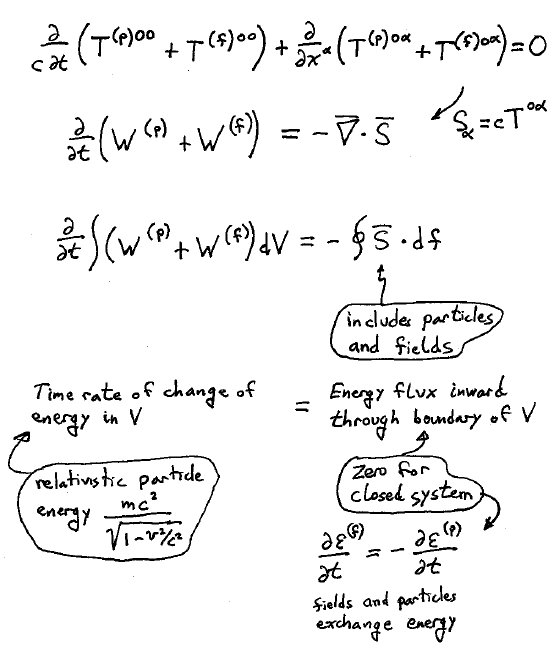 ∂/c∂t (T^(p)00 + T^(f)00) + ∂/∂x^α (T^(p)0α + T^(f)0α) = 0
∂/∂t (W^(p) + W^(f)) = - ∇⃗ · S̄
S_α = cT^0α
∂/∂t ∫(W^(p) + W^(f)) dV = - ∮ S̄ · df
includes particles
and fields.
Time rate of change of
energy in V
=
Energy flux inward
through boundary of V
relativistic particle
energy mc²/√(1-v²/c²)
Zero for
closed system
∂ε^(f)/∂t = - ∂ε^(p)/∂t
fields and particles
exchange energy